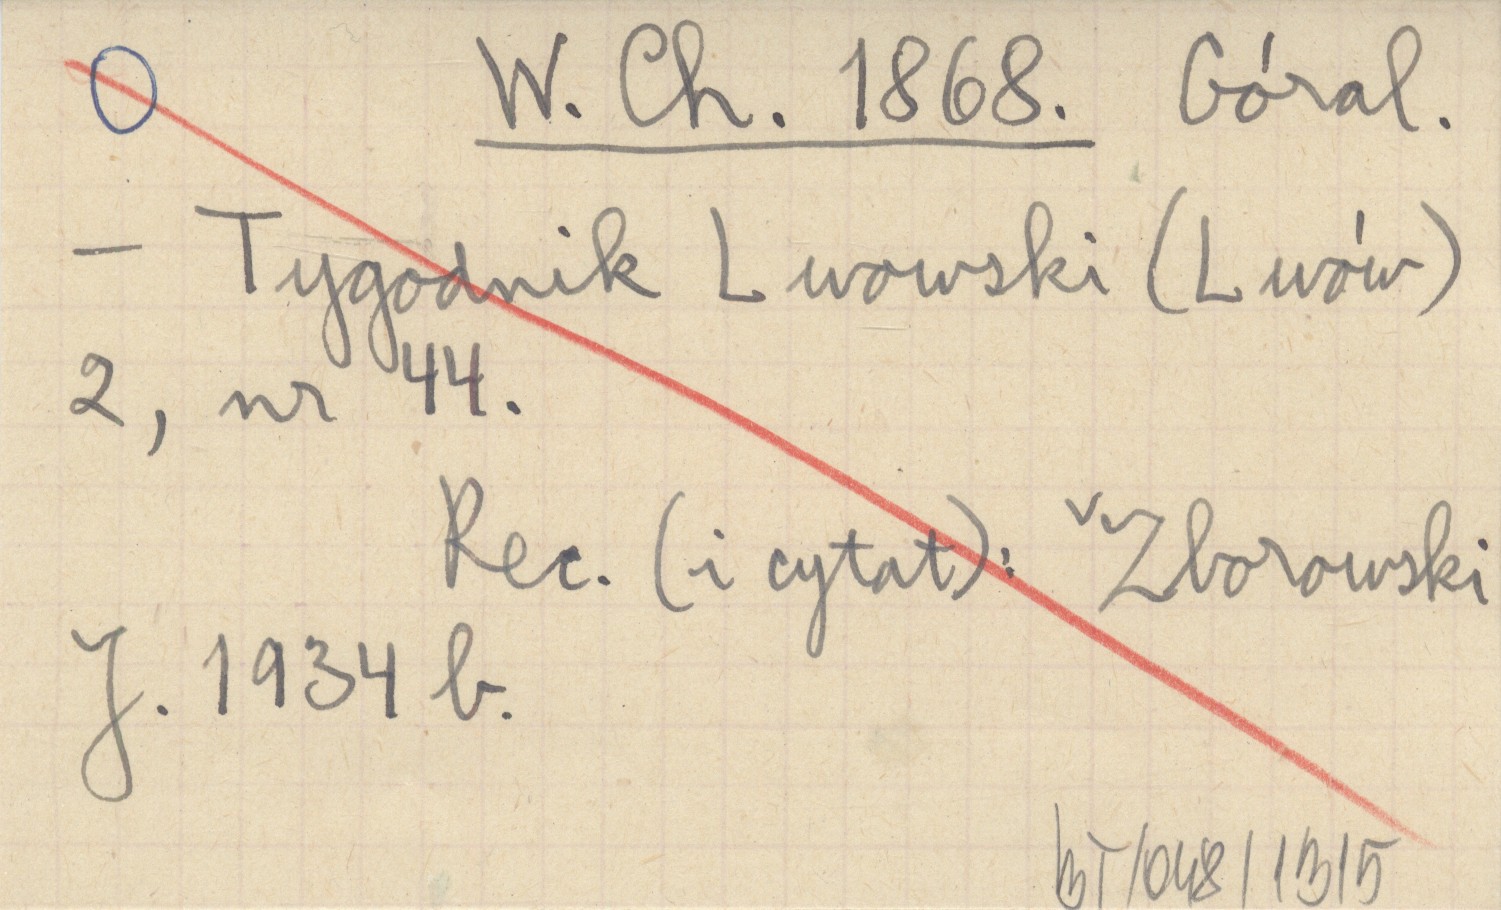 O W. Ch. 1868. Góral.
– Tygodnik Lwowski (Lwów)
2, nr 44.
Rec. (i cytat): Zborowski
J. 1934 b.
BT/048/1315